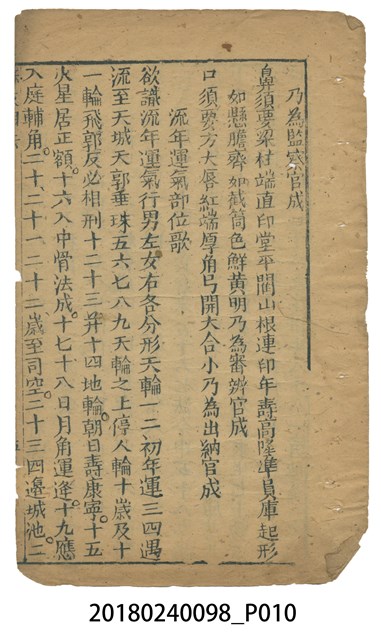 乃為監察官成
鼻須要梁柱端直印堂平闊山根連印年壽高隆準員庫起形
如懸膽齊如截筒色鮮黃明乃為審辨官成
口須要方大唇紅端厚角弓開大合小乃為出納官成
流年運氣部位歌
欲識流年運氣行男左女右各分形天輪一二初年運三四遇
流至天城天郭垂珠五六七八九天輪之上停人輪十歲及十
一輪飛郭反必相刑十二十三并十四地輪朝口壽康寧十五
火星居正額十六入中骨法成十七十八日月角運逢十九應
入庭輔角二十二十一二十二歲至司空二十三四邊城池二
20180240098_P010